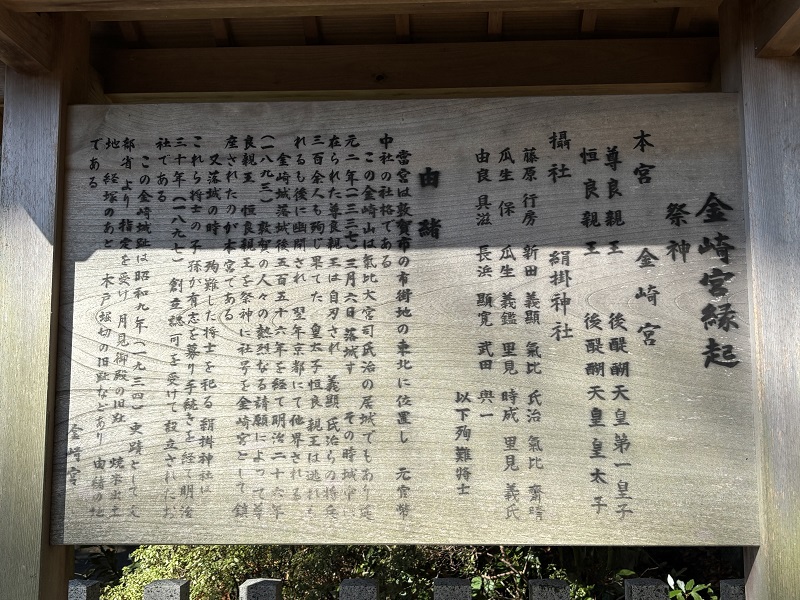 金崎宮縁起
祭神
本宮 金崎宮
尊良親王 後醍醐天皇第一皇子
恒良親王 後醍醐天皇皇太子
摂社 絹掛神社
藤原 行房 新田 義顕 氣比 氏治 氣比 齋晴
瓜生 保 瓜生 義鑑 里見 時成 里見 義氏
由良 具滋 長浜 顕寛 武田 與一
以下殉難将士
由緒
当宮は敦賀市の市街地の東北に位置し 元官幣
中社の社格である
この金崎山は氣比大宮司氏治の居城でもあり延
元二年(一三三七)三月六日落城す その時城中に
在られた尊良親王は自刃され 義顕 氏治らの将兵
三百余人も殉じ果てた 皇太子恒良親王は逃れら
れるも後に幽閉され 翌年京都にて他界される
金崎城落城後五百五十六年を経て明治二十六年
(一八九三)敦賀の人々の熱烈なる請願によって尊
良親王 恒良親王を祭神に社号を金崎宮として鎮
座されたのが本宮である
又落城の時 殉難した将士を祀る 絹掛神社は
これら将士の子孫が有志を募り手続きを経て明治
三十年(一八九七)創立認可を受けて設立されたお
社である
この金崎城趾は昭和九年(一九三四)史蹟として文
部省より指定を受け 月見御殿の旧趾 焼米出土
地 経塚のあと 木戸 堀切の旧趾などあり 由緒の地
である
金崎宮